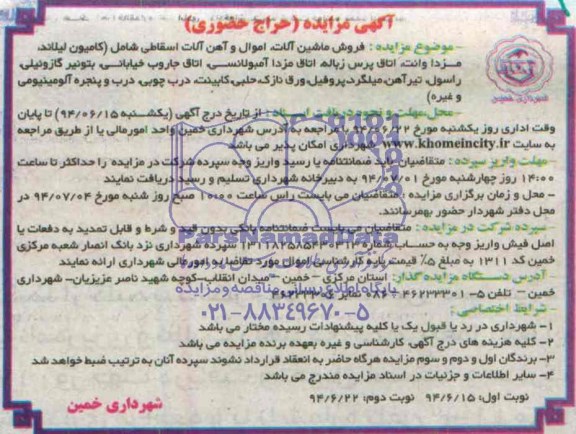 آگهی مزایده (حراج حضوری)
شهرداری خمین
- موضوع مزایده : فروش ماشین آلات، اموال و آهن آلات اسقاطی شامل (کامیون لیلاند،
مزدا وانت، اتاق پرس زباله، اتاق مزدا آمبولانسی، اتاق جاروب خیابانی، بتونیر گازوئیلی،
راسول، تیرآهن، میلگرد، پروفیل، ورق نازک، حلبی، کابینت، درب چوبی، درب و پنجره آلومینیومی
و غیره)
- محل، مهلت و نحوه دریافت اسناد : از تاریخ درج آگهی (یکشنبه ۹۴/۰۶/۱۵) تا پایان
وقت اداری روز یکشنبه مورخ ۹۴/۰۶/۲۲ با مراجعه به آدرس شهرداری خمین واحد امورمالی یا از طریق مراجعه
به سایت www.khomeincity.ir شهرداری امکان پذیر می باشد
مهلت واریز سپرده : متقاضیان باید ضمانتنامه یا رسید واریز وجه سپرده شرکت در مزایده را حداکثر تا ساعت
۱۴:۰۰ روز چهارشنبه مورخ ۹۴/۰۷/۰۱ به دبیرخانه شهرداری تسلیم و رسید دریافت نمایند
- محل و زمان برگزاری مزایده : متقاضیان می بایست راس ساعت ۱۰:۰۰ صبح روز شنبه مورخ ۹۴/۰۷/۰۴ در
محل دفتر شهردار حضور بهمرسانند.
سپرده شرکت در مزایده : متقاضیان می بایست ضمانتنامه بانکی بدون قید و شرط و قابل تمدید به دفعات یا
اصل فیش واریز وجه به حساب شماره سپرده شهرداری نزد بانک انصار شعبه مرکزی
خمین کد ۱۳۱۱ به مبلغ ۵٪ قیمت پایه کارشناسی اموال مورد تقاضا به امورمالی شهرداری ارائه نمایند
آدرس دستگاه مزایده گذار: استان مرکزی - خمین - میدان انقلاب - کوچه شهید ناصر عزیزیان - شهرداری
خمین - تلفن ۵- ۴۶۲۳۳۳۰۱ - ۰۸۶ نمابر
شرایط اختصاصی :
۱- شهرداری در رد یا قبول یک یا کلیه پیشنهادات رسیده مختار می باشد
۲- کلیه هزینه های درج آگهی، کارشناسی و غیره بعهده برنده مزایده می باشد
۳- برندگان اول و دوم و سوم مزایده هرگاه حاضر به انعقاد قرارداد نشوند سپرده آنان به ترتیب ضبط خواهد شد
۴- سایر اطلاعات و جزئیات در اسناد مزایده مندرج می باشد
نوبت اول: ۹۴/۶/۱۵ نوبت دوم: ۹۴/۶/۲۲
شهرداری خمین
پایگاه اطلاع رسانی مناقصه و مزایده
۰۲۱-۸۸۳۴۹۶۷۰-۵